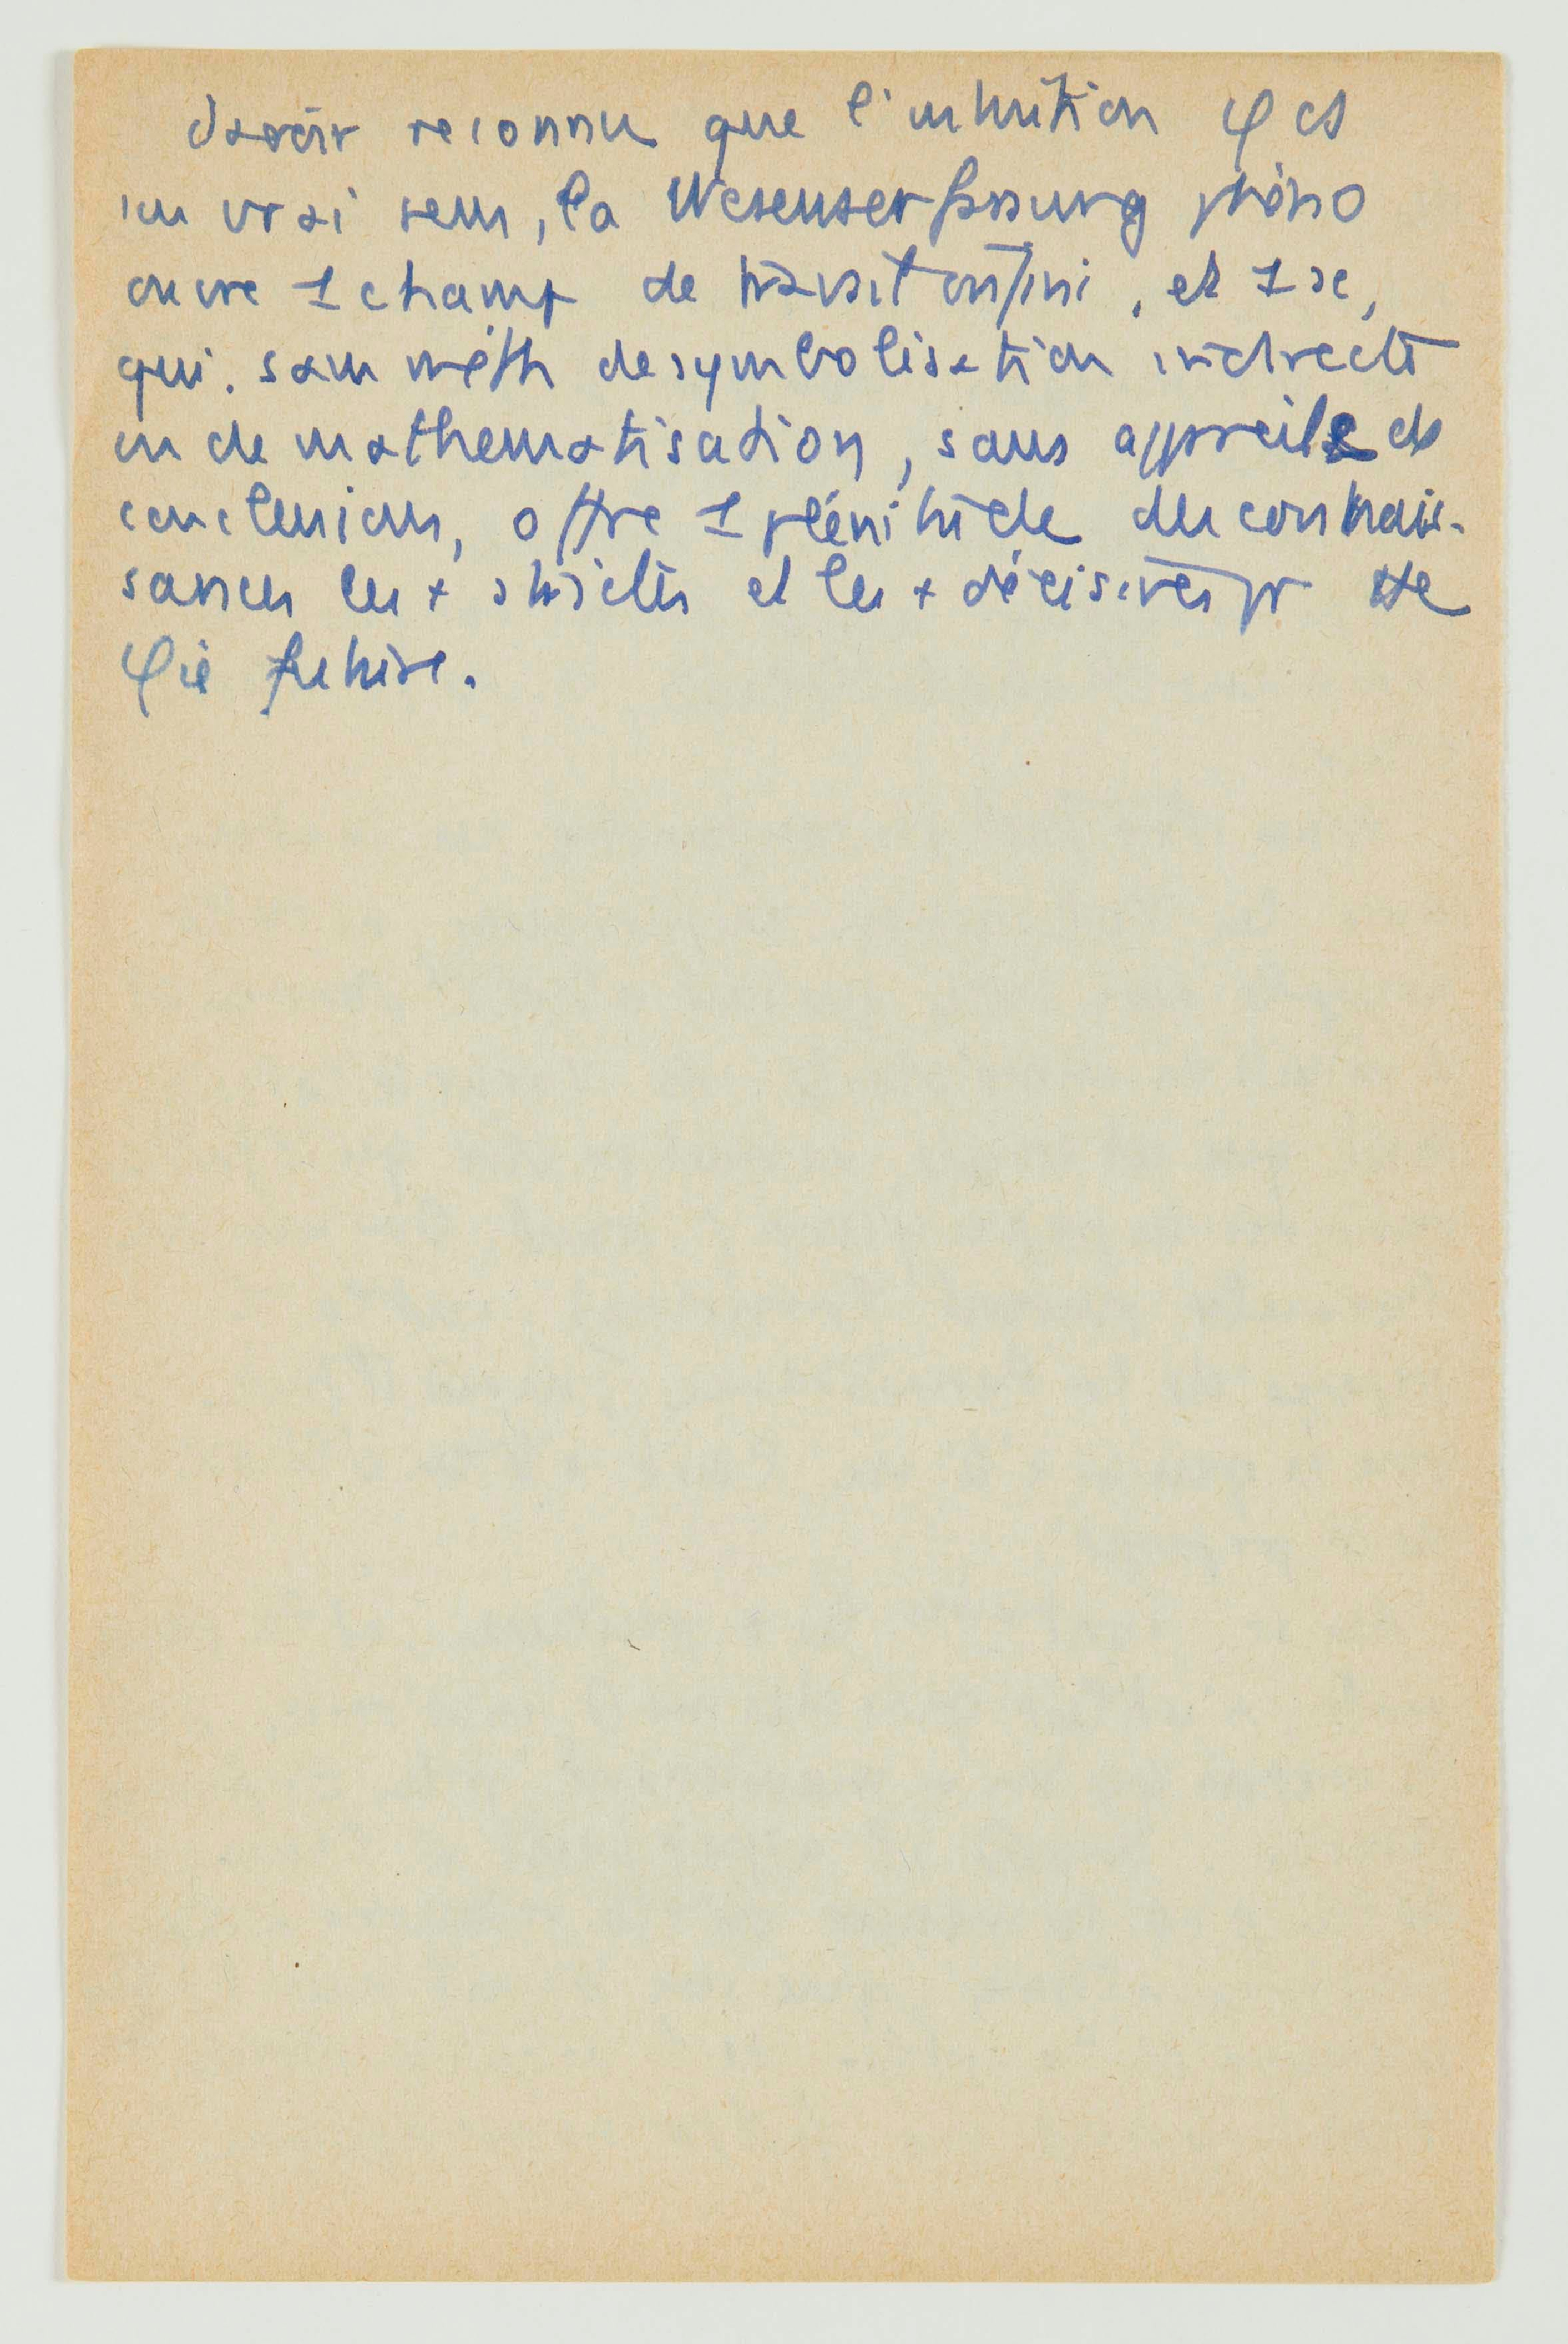 d'avoir reconnu que l'intuition φ as
au vrai sens, la Wesenserfassung phéno
ouvre 1 champ de travail infini, et 1 sc,
qui. sans méth de symbolisation indirecte
ou de mathematisation, sans appareils de
conclusions, offre 1 plénitude des connais-
sances les + strictes et les + décisives pr tte
φie future.